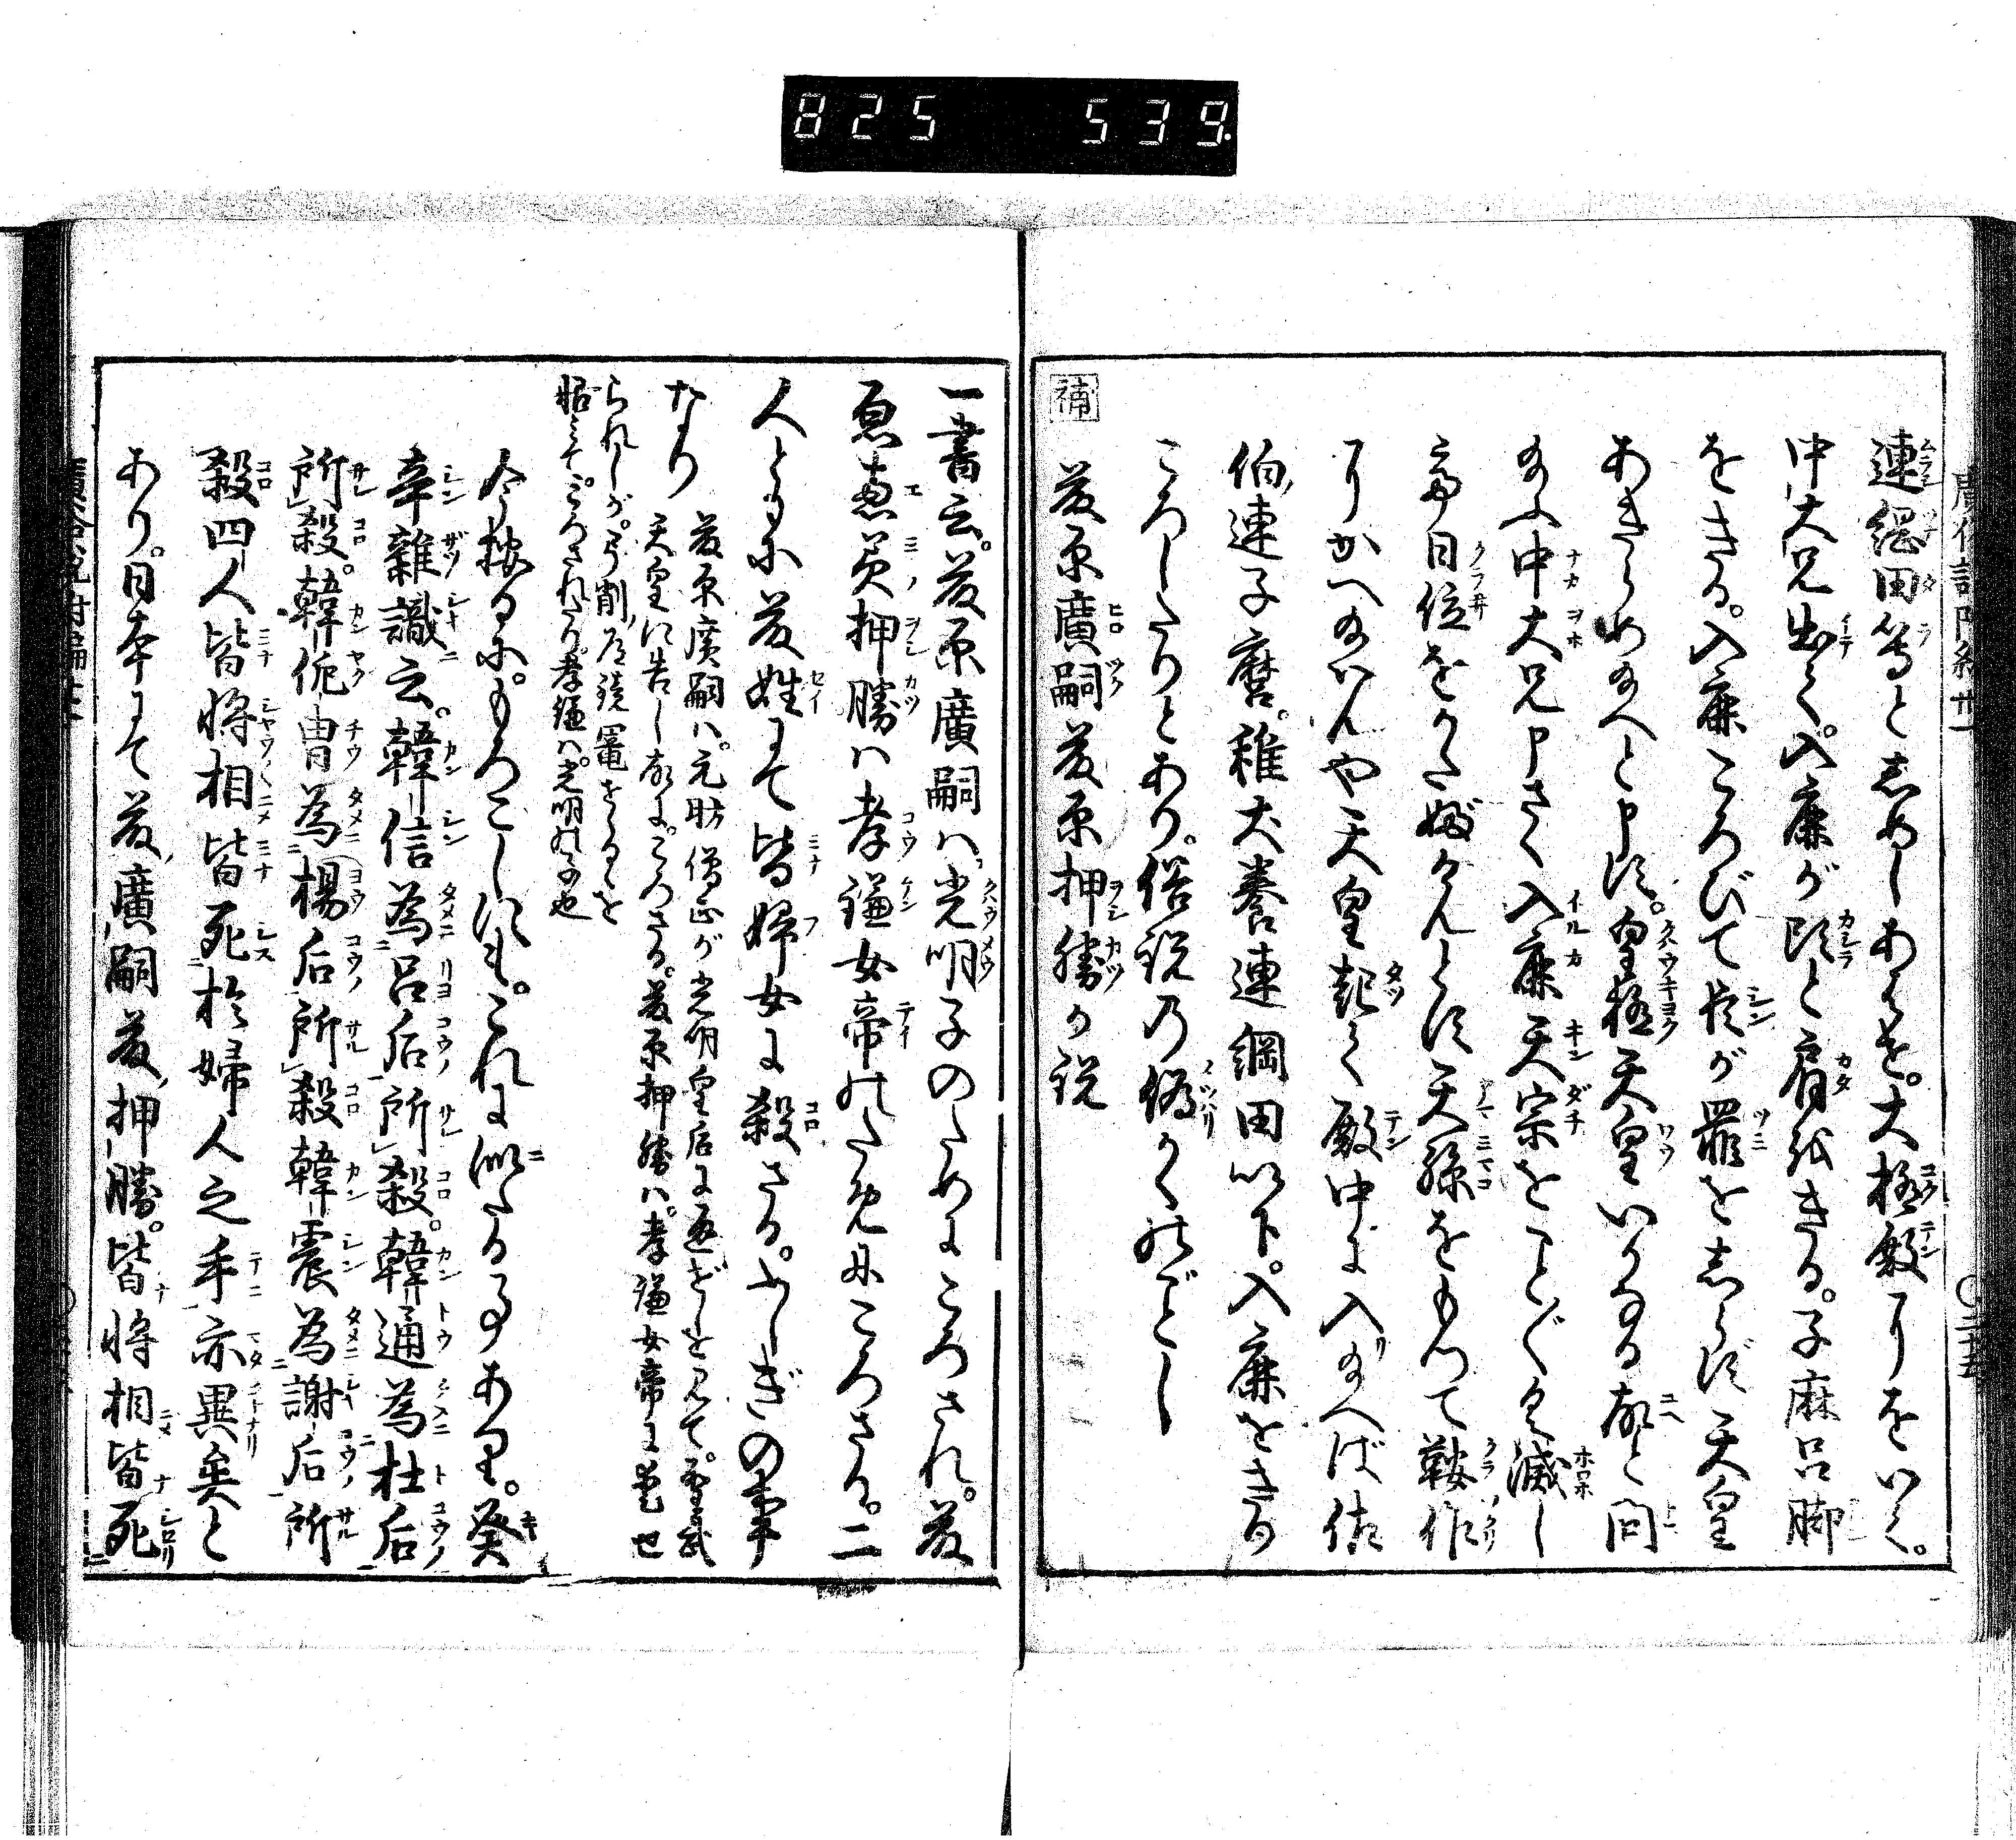 825 539
連綱田等としめしあはせ。大極殿にをいて。
中大兄出て。入鹿が頭と肩をきる。子麻呂脚
をきる。入鹿ころびて臣が罪をしらず天皇
あきらめ給へと申す。皇極天皇いかなる故と問
給ふ中大兄申さく入鹿天宗をことごとく滅し
日位をかたぶけんとす天孫をもつて鞍作
にかへ給はんや天皇起て殿中に入給へば佐
伯連子麿。稚犬養連綱田以下。入鹿をきり
ころしたりとあり。俗説の偽かくのごとし
補
藤原廣嗣藤原押勝が説
一書云。藤原廣嗣ハ光明子のためにころされ。藤
原惠美押勝ハ孝謙女帝のためにころさる。二
人ともに藤姓にて皆婦女に殺さる。ふしぎの事
なり
藤原廣嗣ハ。元昉僧正が光明皇后に通ぜしを見て。聖武
天皇に告し故に。ころさる。藤原押勝ハ。孝謙女帝に愛せ
られしが。弓削道鏡寵をうるを
妬みて。ころされたり。孝謙ハ。光明の子也
今按るに。もろこしにも。これに似たる事あり。癸
辛雜識云。韓信為呂后所殺。韓通為杜后
所殺。韓侂冑為楊后所殺韓震為謝后所
殺四人皆將相皆死於婦人之手亦異矣と
あり。日本にて藤廣嗣藤押勝。皆將相皆死